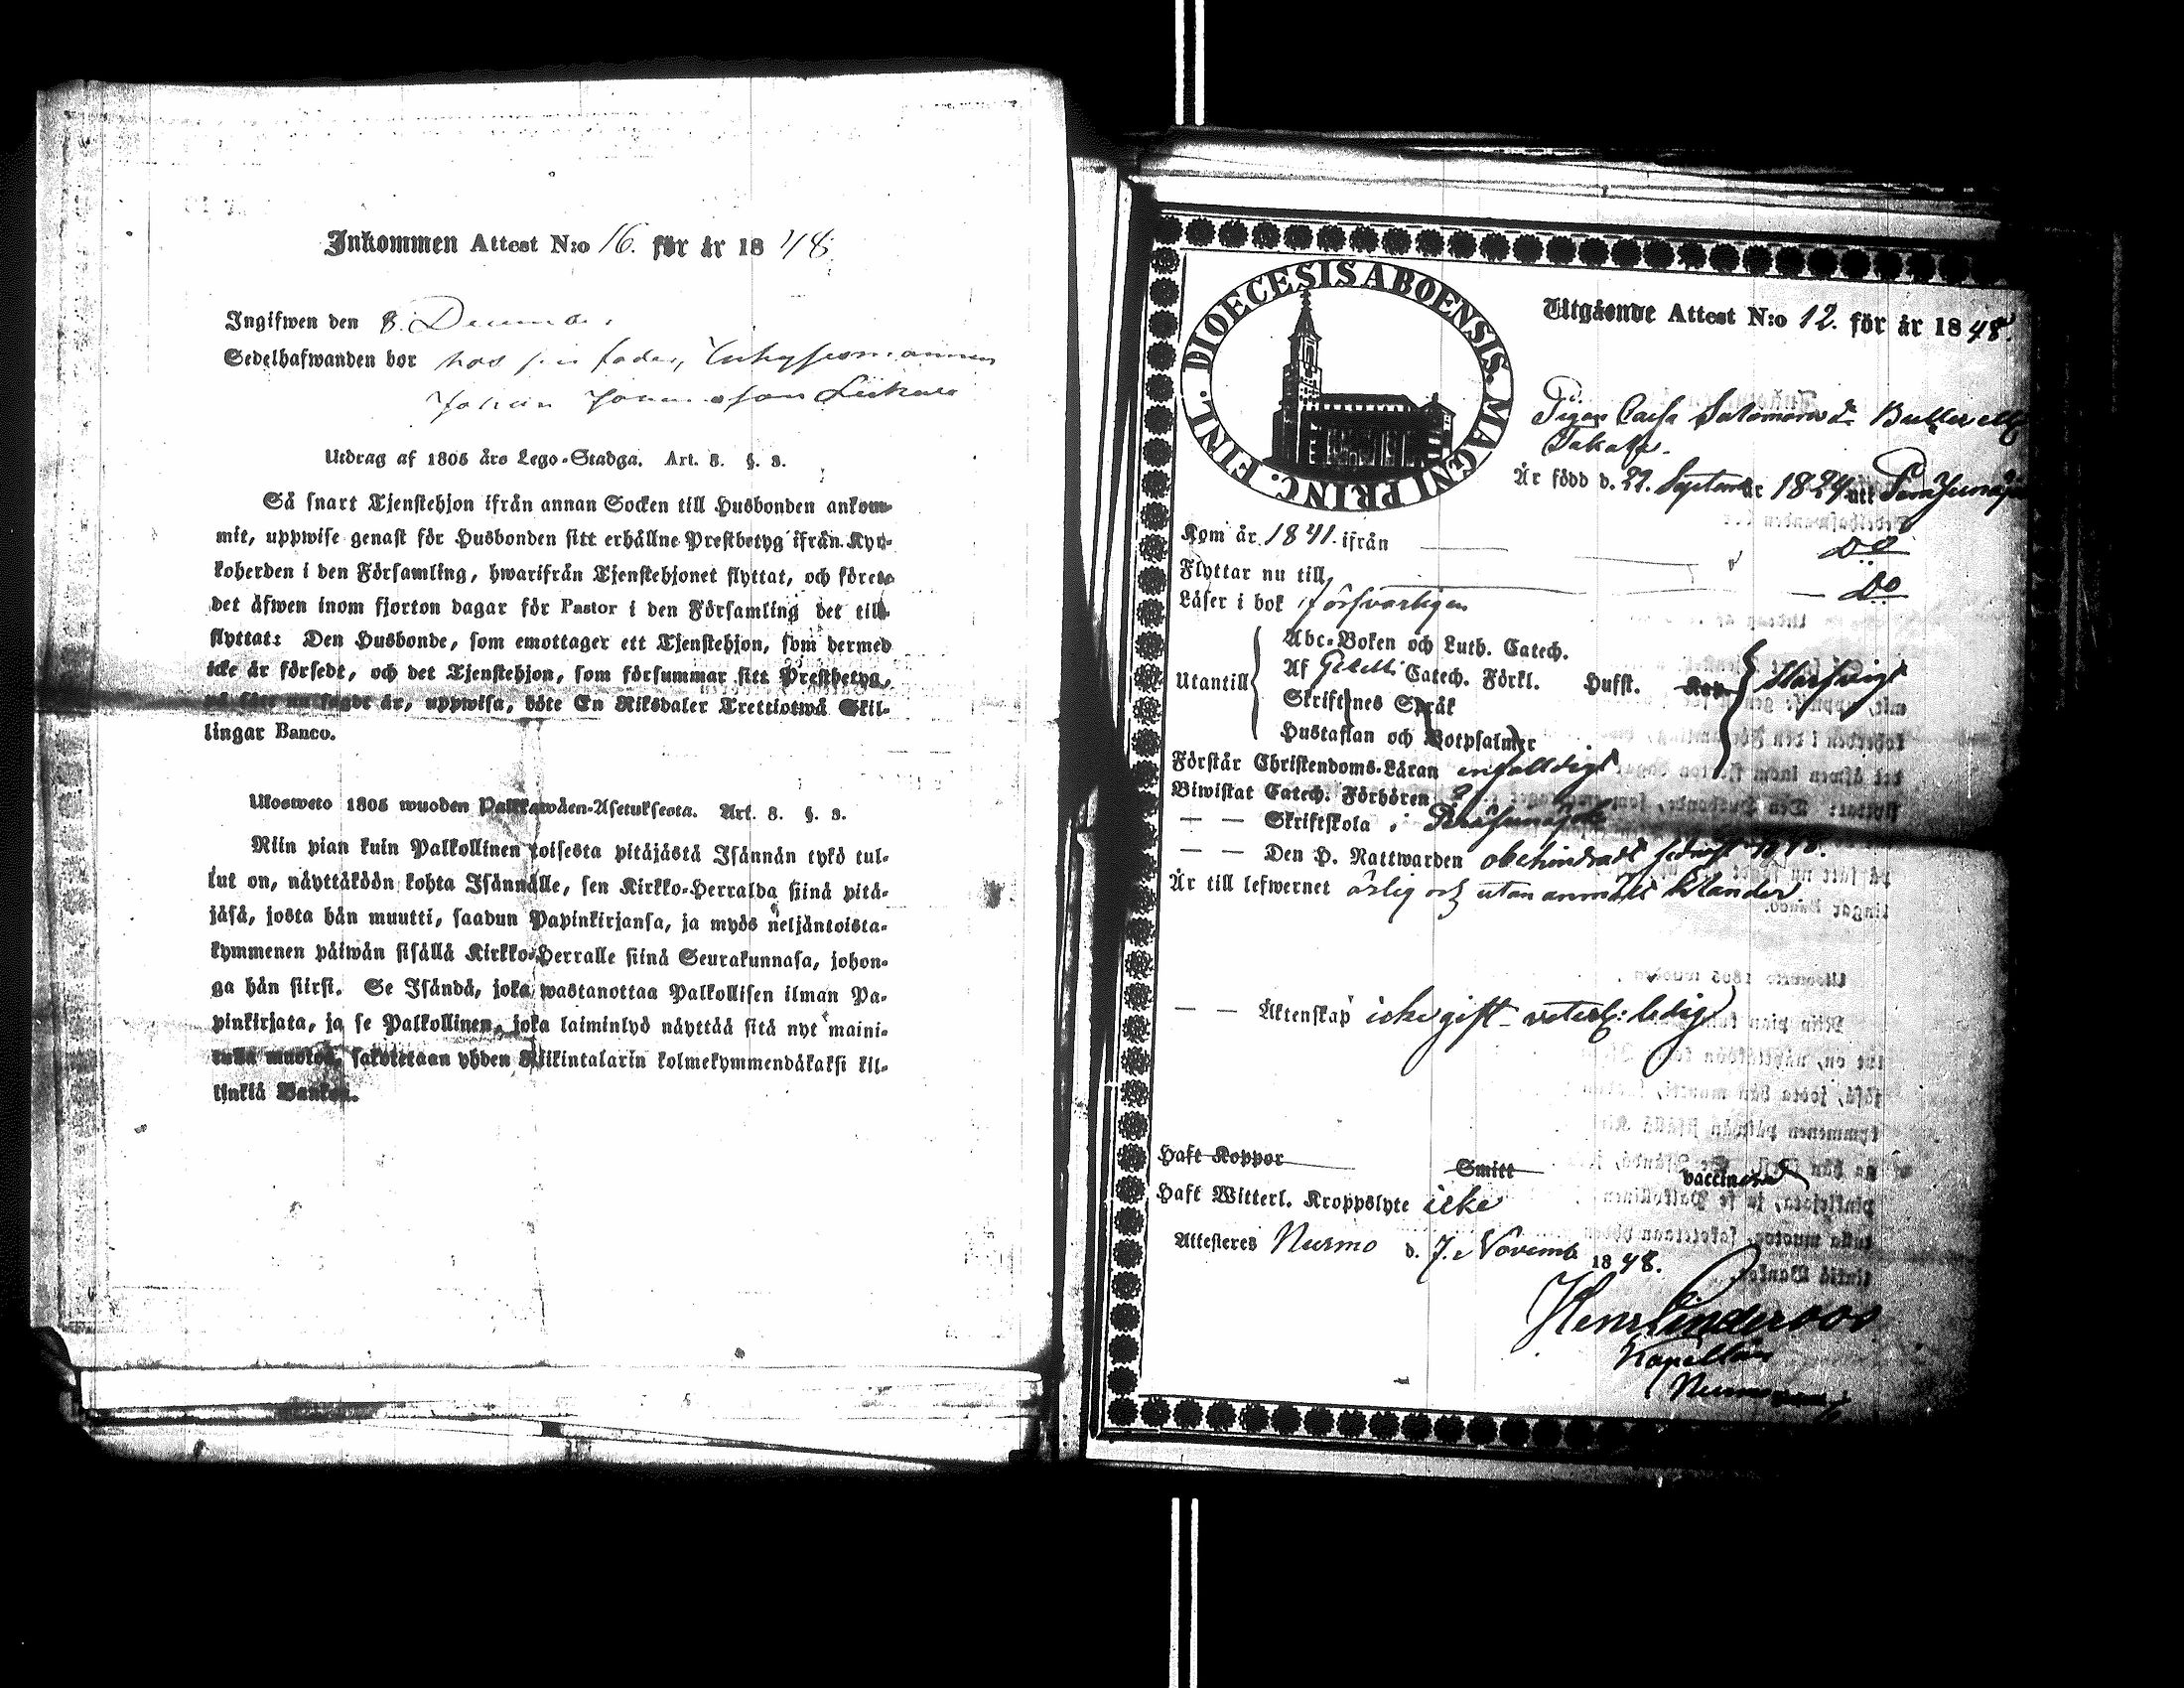 Inkommen Attest N:o 16. för år 1848.
Ingifwen den 8. December
Sedelhafwanden bor hos sin fader, Inhysesmannen
Johan
Utdrag af 1805 års Lego-Stadga. Art. 8. §. 3.
Så snart Tjenstehjon ifrån annan Socken till Husbonden ankom-
mit, uppwise genast för Husbonden sitt erhållne Prestbetyg ifrån Kyr-
koherden i den Församling, hwarifrån Tjenstehjonet flyttat, och förete
det äfwen inom fjorton dagar för Pastor i den Församling det till-
flyttat: Den Husbonde, som emottager ett Tjenstehjon, som dermed
icke är försedt, och det Tjenstehjon, som försummar sitt Prestbetyg,
på sätt nu sagdt är, uppwisa, böte En Riksdaler Trettiotwå Skil-
lingar Banco.
Ulosweto 1805 wuoden Palkkawäen-Asetuksesta. Art. 8. §. 3.
Niin pian kuin Palkollinen toisesta pitäjästä Isännän tykö tul-
lut on, näyttäköön kohta Isännälle, sen Kirkko-Herralda siinä pitä-
jäsä, josta hän muutti, saadun Papinkirjansa, ja myös neljäntoista-
kymmenen päiwän sisällä Kirkko-Herralle siinä Seurakunnasa, johon-
ga hän siirsi. Se Isändä, joka wastanottaa Palkollisen ilman Pa-
pinkirjata, ja se Palkollinen, joka laiminlyö näyttää sitä nyt maini-
tulla muotoa, sakoitetaan yhden Riikintalarin kolmekymmendäkaksi kil-
linkiä Bankos.
DIOECESIS ABOENSIS. MAGNI PRINC. FINL.
Utgående Attest N:o 12. för år 1848.
Pigan Caisa Salomonsdr
Är född d. 22. September 1824 att
Kom år 1841. ifrån Do
Flyttar nu till Do
Läser i bok försvarligen
Abc-Boken och Luth. Catech.
Utantill Af Catech. Förkl. Husst. Kap.
Skriftenes Språk
Hustaflan och Botpsalmer
Förstår Christendoms-Läran enfaldigt
Biwistat Catech. Förhören
— — Skriftskola i
— — Den H. Nattwarden obehindradt sednast 1848.
Är till lefwernet ärlig och utan anmält klander
— — Äktenskap icke gift - veterl: ledig
Haft Koppor Smitt vaccinerad
Haft Witterl. Kroppslyte icke
Attesteres Nurmo d. 7. Novemb 1848.
Henr Linderoos
Kapellan